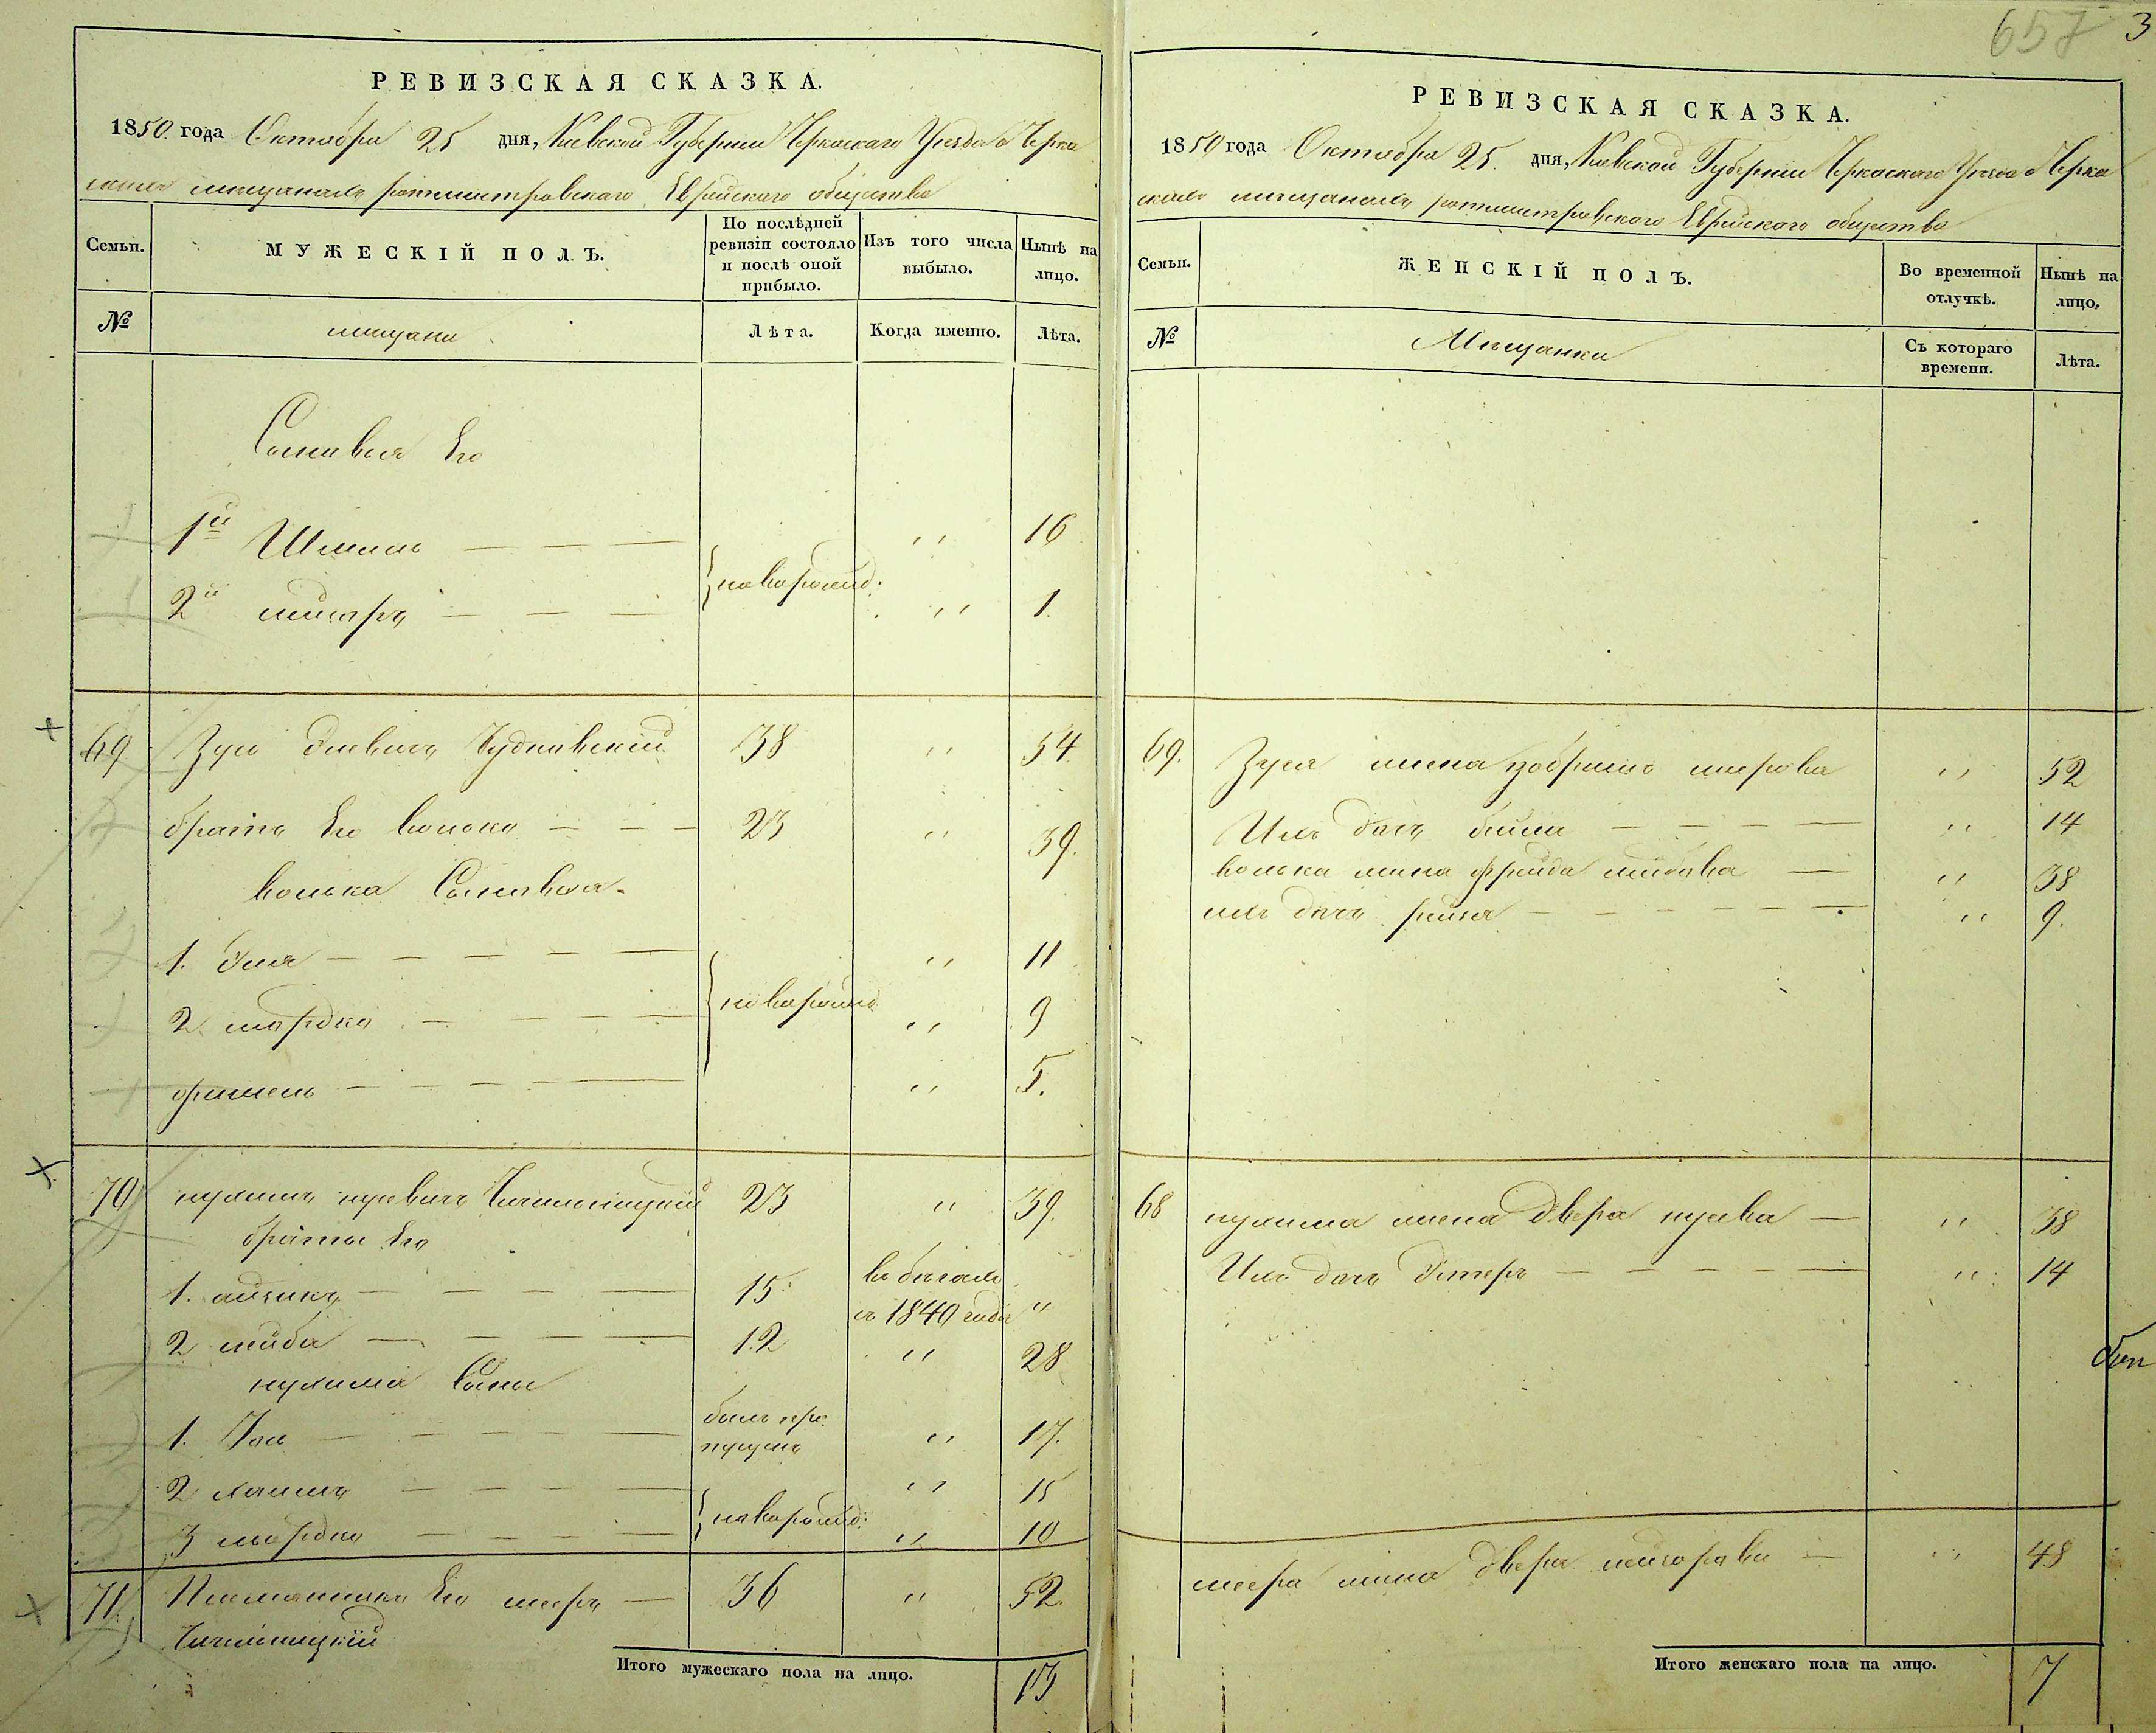 657 3
РЕВИЗСКАЯ СКАЗКА.
1850 года Октября 25 дня, Киевской Губернии Черкаскаго Уезда о Черка
скихъ мещанахъ ротмистровскаго Еврейскаго общества
Семьи.
МУЖЕСКІЙ ПОЛЪ.
По послѣдней ревизіи состояло и послѣ оной прибыло.
Изъ того числа выбыло.
Нынѣ на лицо.
№
мещани
Лѣта.
Когда именно.
Лѣта.
Сыновья Его
1й Шмиль — — — новорожд: ,, 16
2й — — — ,, 1.
69 Зусь Элевичъ Чудновский 38 ,, 54
братъ Его волько — — — 23 ,, 39.
волька Сыновья.
1. Эля — — — — — новорожд ,, 11
2. мордко — — — — ,, 9
фишель — — — — — ,, 5.
70 нухимъ 23 ,, 39.
братья Его
1. айзикъ — — — — 15 в бегахъ
съ 1840 года "
2 лейба — — — — 12 ,, 28
нухима Сыны
1. Іось — — — — — былъ про
пущенъ ,, 17.
2 хаимъ — — — — новорожд: ,, 15
3 мордко — — — — ,, 10
71. Племянникъ Его мееръ — 36 ,, 52.
Итого мужескаго пола на лицо. 13
РЕВИЗСКАЯ СКАЗКА.
1850 года Октября 25. дня, Киевской Губерніи Черкаскаго Уезда о Черка
скихъ мещанахъ ротмистровскаго Еврейскаго общества
Семьи.
ЖЕНСКІЙ ПОЛЪ.
Во временной отлучкѣ.
Нынѣ на лицо.
№
Мещанки
Съ котораго времени.
Лѣта.
69. Зуся жена мерова ,, 52
Ихъ дочь бейла — — — — ,, 14
волька жена фрейда лейбова — ,, 38
ихъ дочь рейзя — — — — — ,, 9.
68 нухима жена Двера — ,, 38
Ихъ дочь Эстеръ — — — — — ,, 14
меера жена двера — ,, 48
Итого женскаго пола на лицо. 7